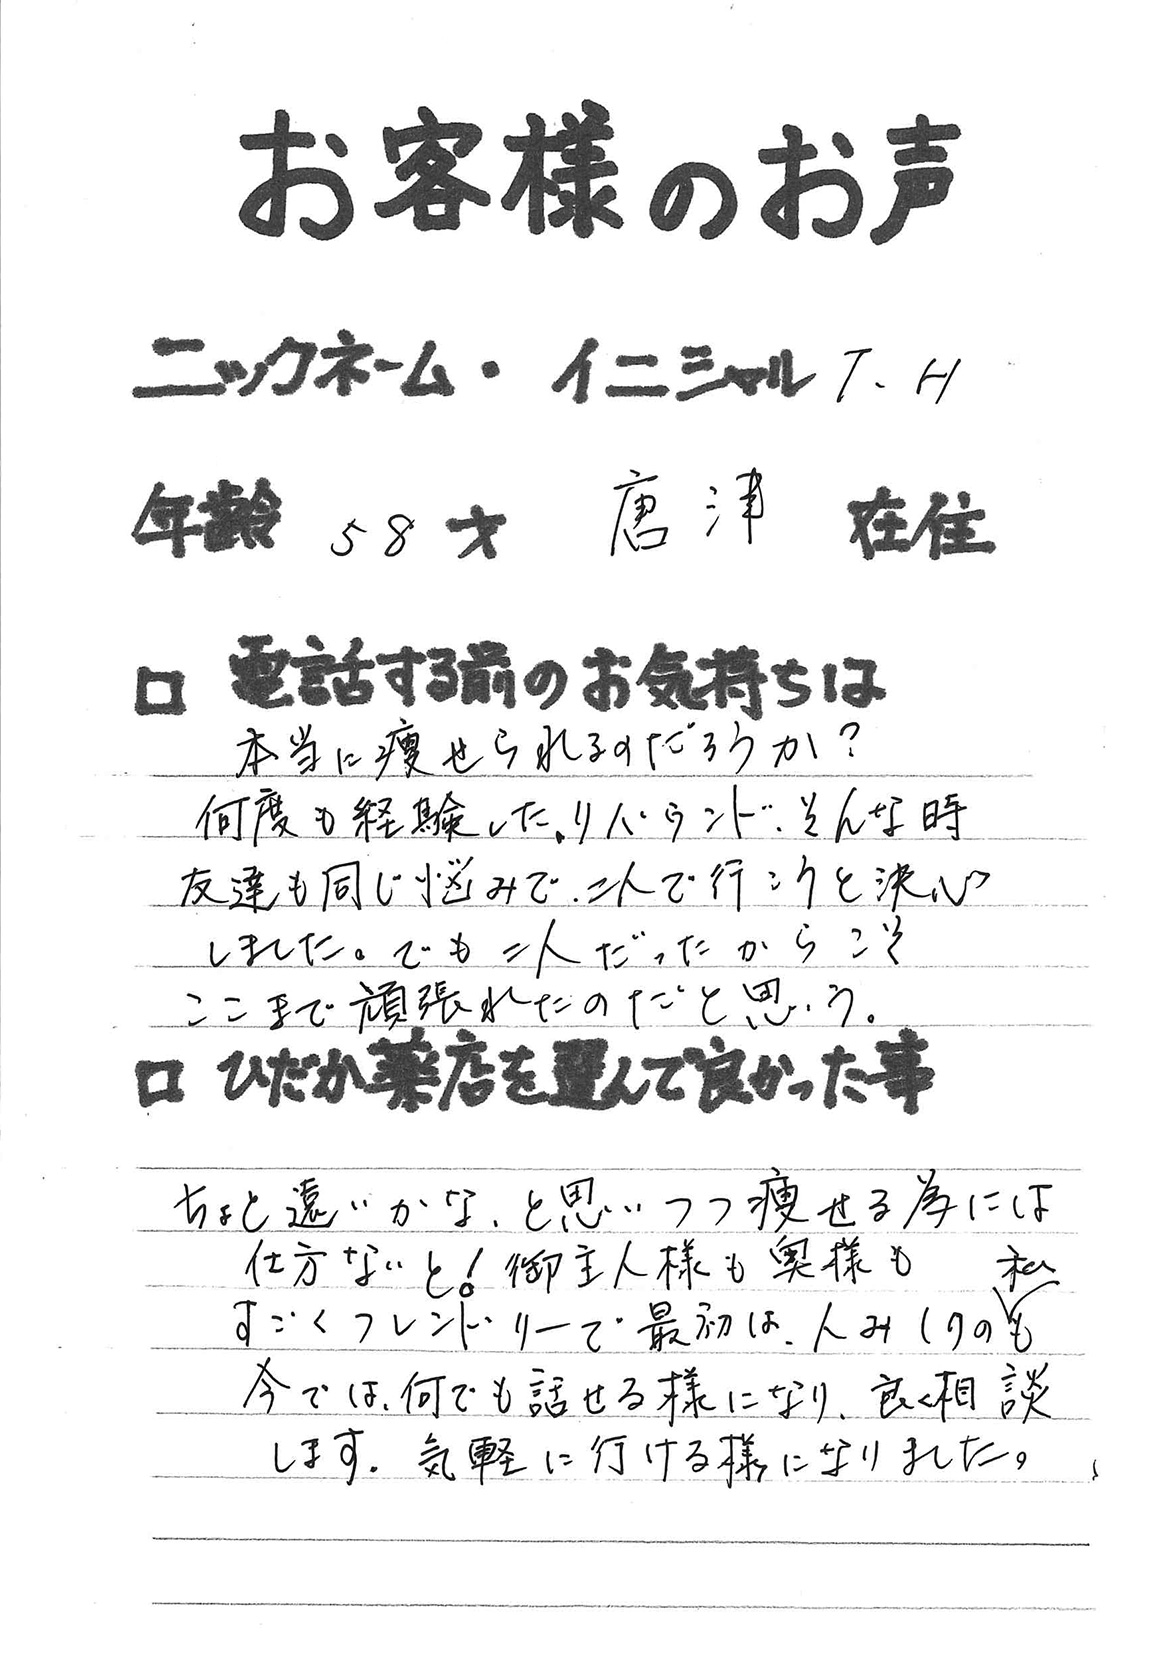 お客様のお声
ニックネーム・ イニシャル T.H
年齢 58 才 唐津 在住
□ 電話する前のお気持ちは
本当に痩せられるのだろうか?
何度も経験した、リバウンド、そんな時
友達も同じ悩みで、二人で行こうと決心
しました。でも二人だったからこそ
ここまで頑張れたのだと思う。
□ ひだか薬店を選んで良かった事
ちょと遠いかな、と思いつつ痩せる為には
仕方ないと!御主人様も奥様も
すごくフレンドリーで最初は、人みしりの私も
今では、何でも話せる様になり、良く相談
します。気軽に行ける様になりました。